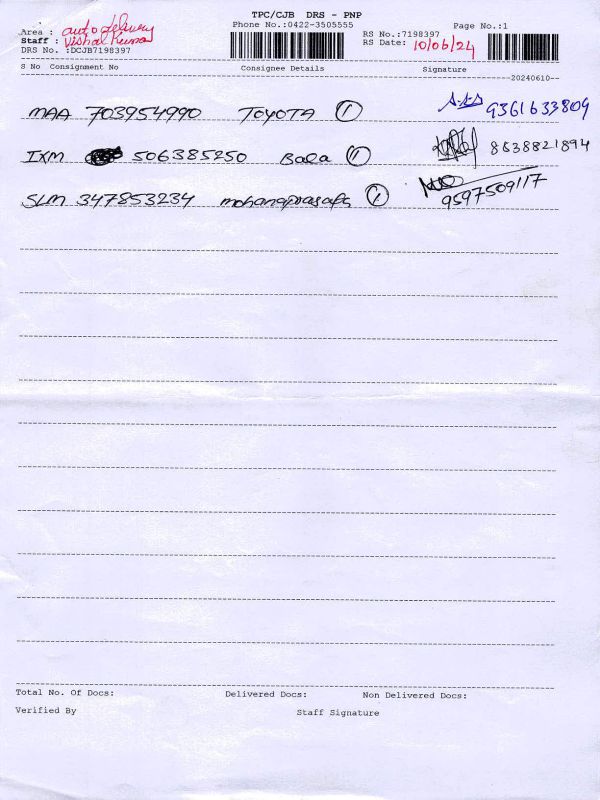 TPC/CJB DRS - PNP
Phone No.:0422-3505555 Page No.:1
Area : auto delivery
Staff : Vishal Kumar
DRS No. :DCJB7198397
RS No.:7198397
RS Date: 10/06/24
S No Consignment No Consignee Details Signature
20240610
MAA 703954990 TOYOTA 1 9361633809
IXM 506385250 Bala 1 8638821894
SLM 347853234 mohanaprasath 1 9597509117
Total No. Of Docs: Delivered Docs: Non Delivered Docs:
Verified By Staff Signature